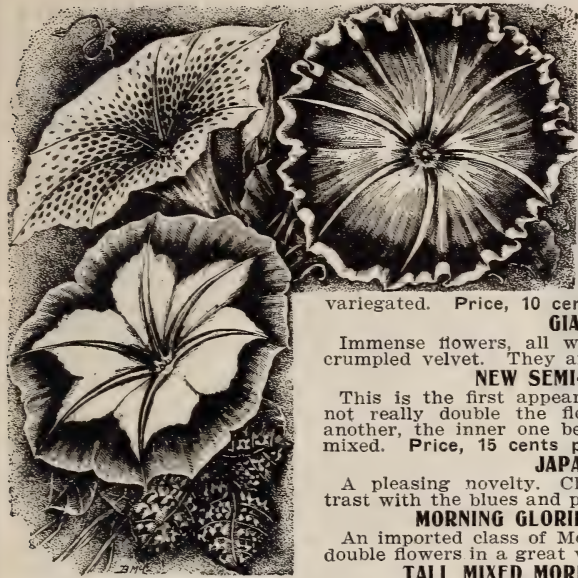 variegated. Price, 10 cen
GIA
Immense flowers, all w
crumpled velvet. They a
NEW SEMI-
This is the first appear
not really double the flo
another, the inner one be
mixed. Price, 15 cents p
JAPA
A pleasing novelty. Cl
trast with the blues and p
MORNING GLORIE
An imported class of Mo
double flowers in a great v
TALL MIXED MOR